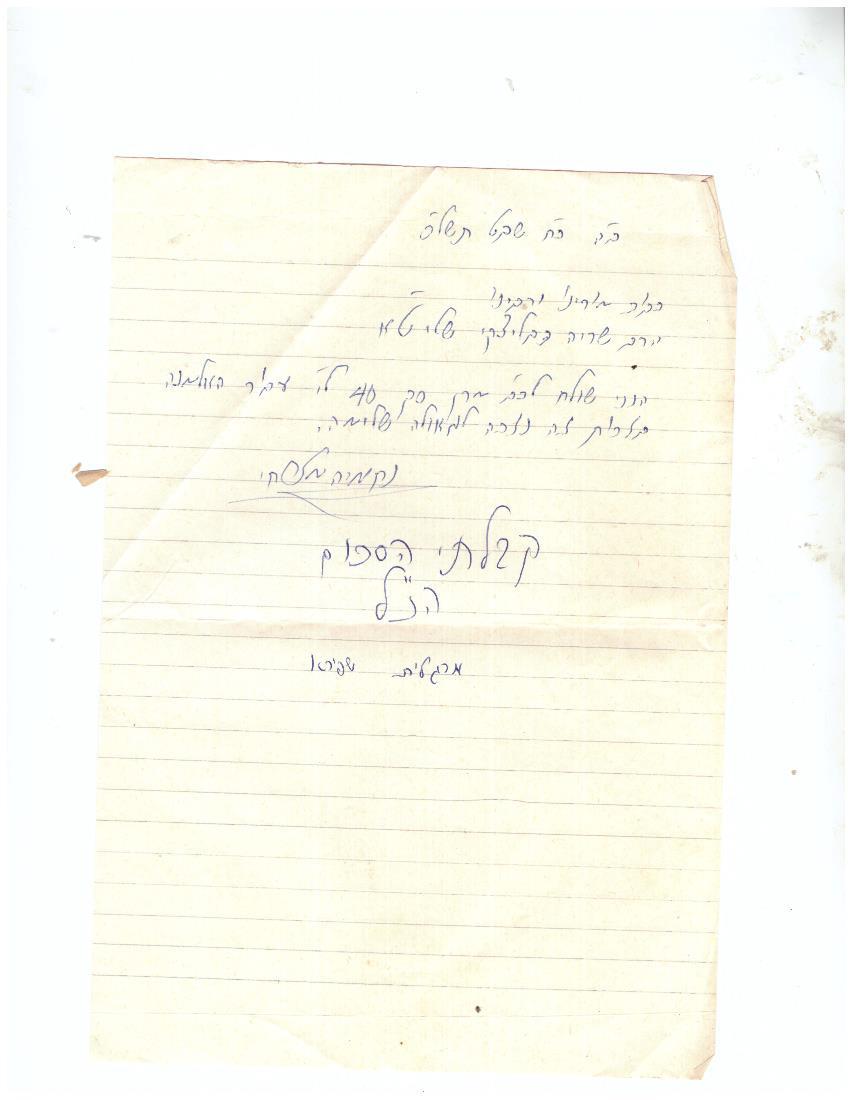 ב"ה כח שבט תשל"פ
כבוד מורינו ורבינו
הרב שריה דבליצקי שליט"א
הנני שולח לכב' מרן סך 40 ל"י עבור האלמנה
בזכות זה נזכה לגאולה שלימה.
נחמיה
קבלתי הסכום
הנ"ל
מרגלית שפירא